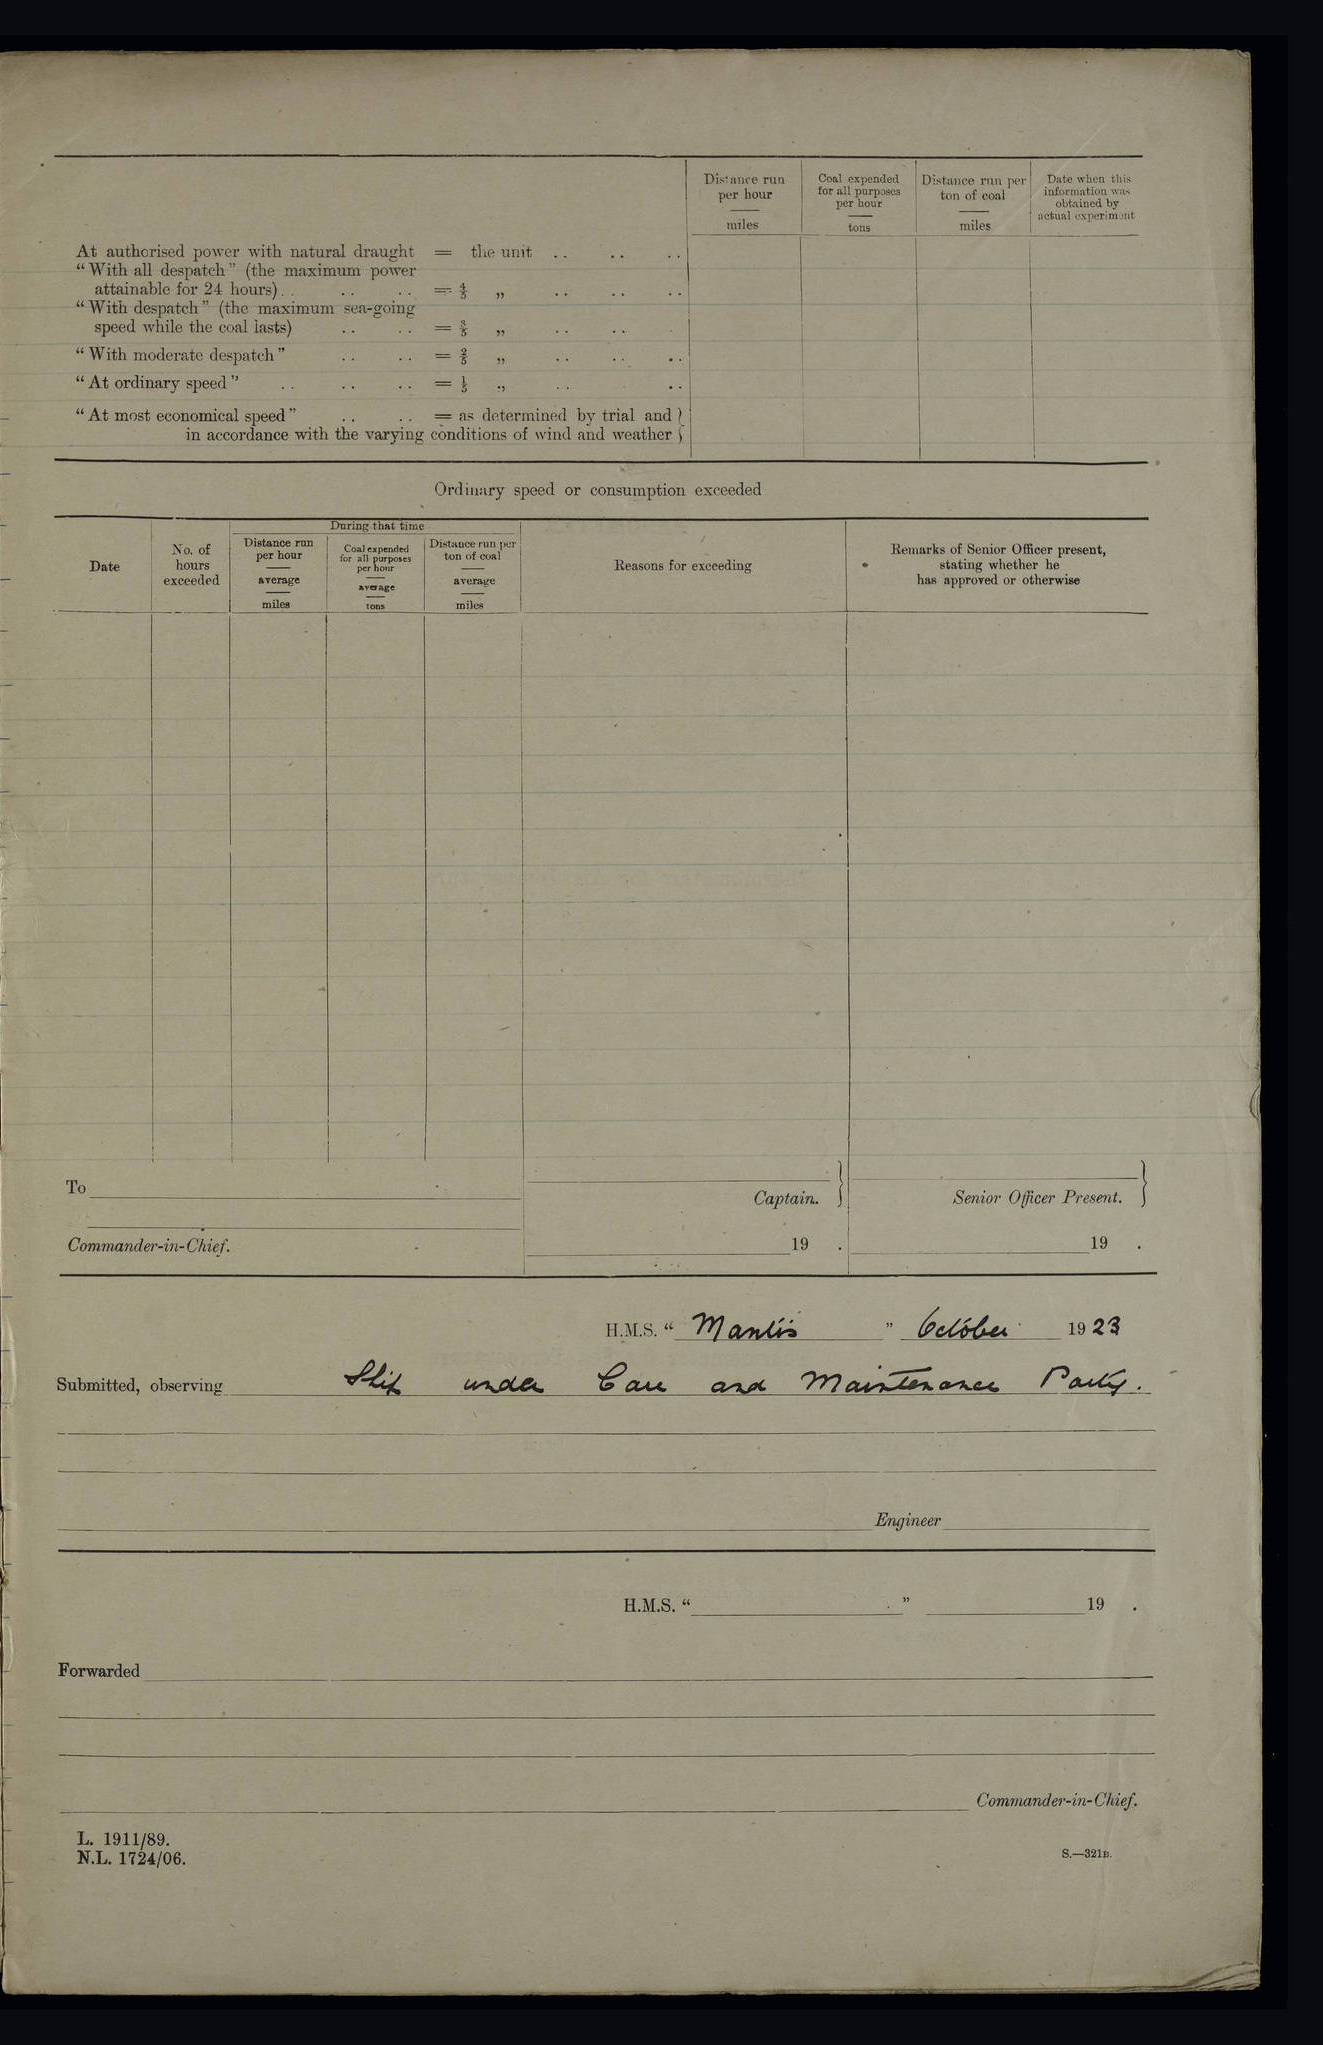 Distance run per hour — miles
Coal expended for all purposes per hour — tons
Distance run per ton of coal — miles
Date when this information was obtained by actual experiment
At authorised power with natural draught = the unit .. .. ..
“With all despatch” (the maximum power
attainable for 24 hours) .. .. .. = 4/5 „ .. .. ..
“With despatch” (the maximum sea-going
speed while the coal lasts) .. .. = 3/5 „ .. ..
“With moderate despatch” .. .. = 2/5 „ .. .. ..
“At ordinary speed” .. .. .. = 1/5 „ .. ..
“At most economical speed” .. .. = as determined by trial and }
in accordance with the varying conditions of wind and weather }
Ordinary speed or consumption exceeded
During that time
Date
No. of hours exceeded
Distance run per hour — average — miles
Coal expended for all purposes per hour — average — tons
Distance run per ton of coal — average — miles
Reasons for exceeding
Remarks of Senior Officer present, stating whether he has approved or otherwise
To
Captain. }
Senior Officer Present. }
Commander-in-Chief.
19 .
19 .
H.M.S. “ Mantis ” October 1923
Submitted, observing Ship under Care and Maintenance Party.
Engineer
H.M.S. “ ” 19 .
Forwarded
Commander-in-Chief.
L. 1911/89.
N.L. 1724/06.
S.—321B.